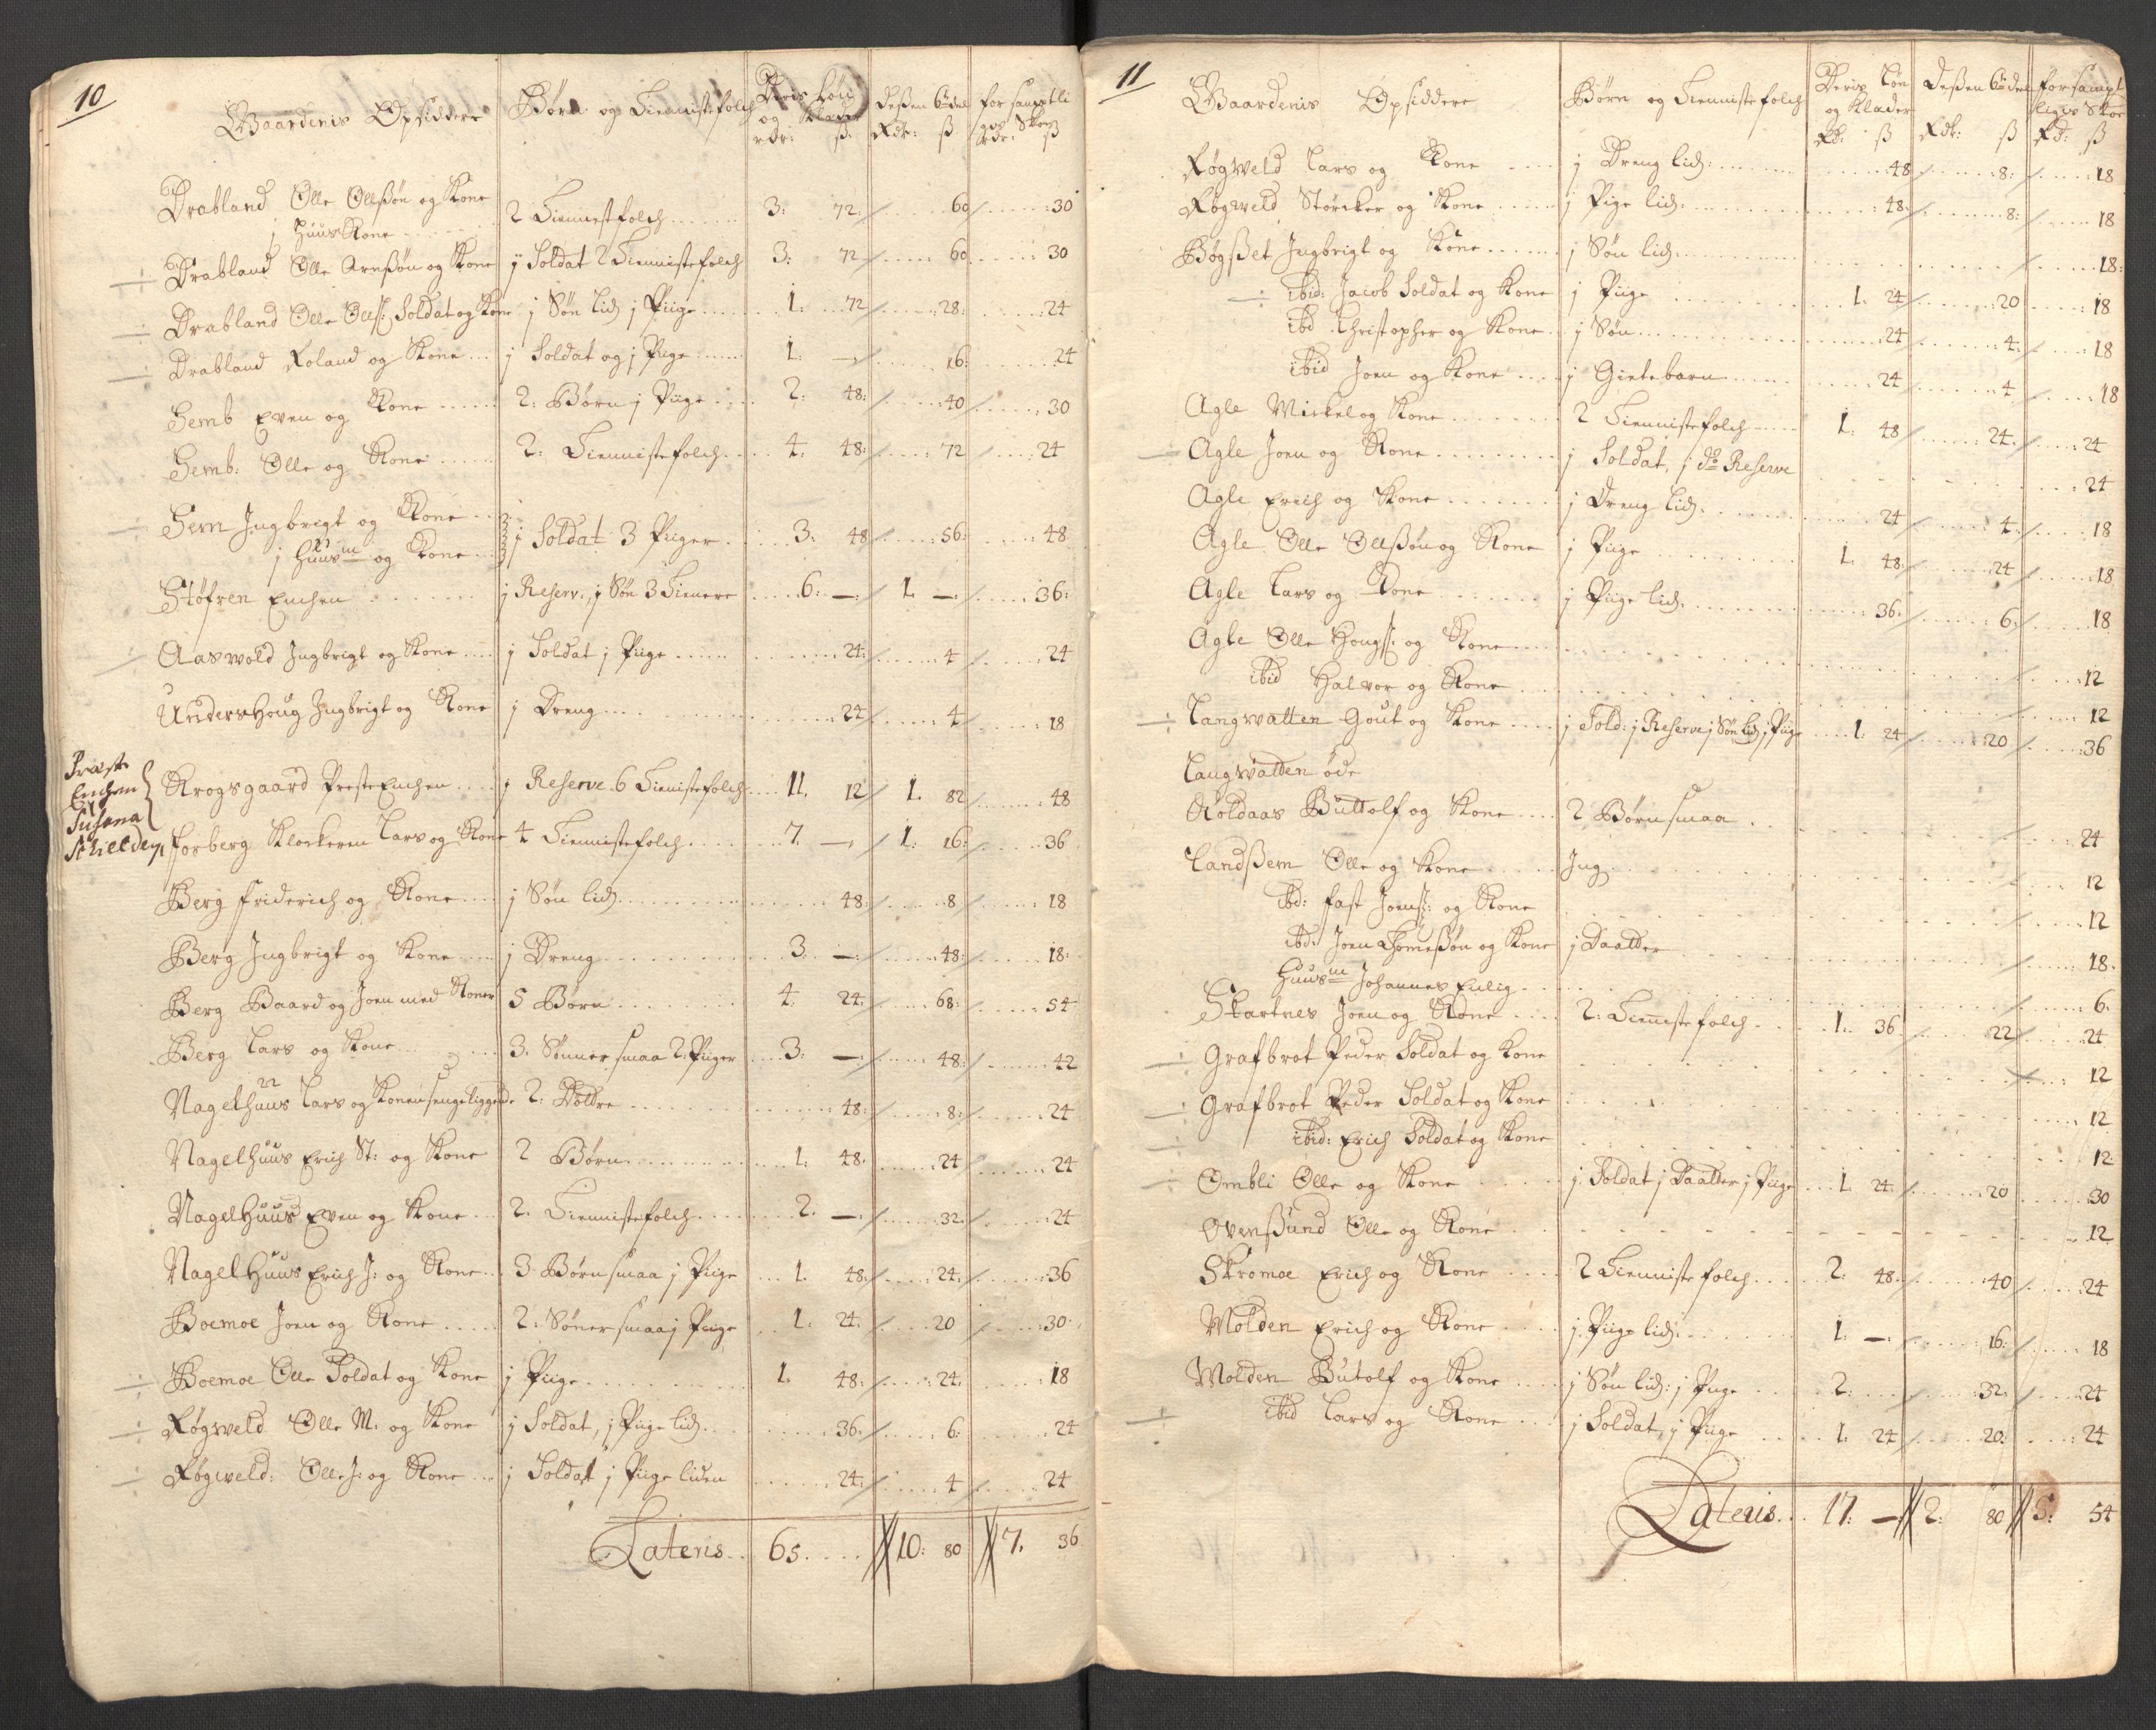 10
Gaardenis Opsiddere Børn og Tiennistefolch Deris Løn og Klæder Desßen 6te deel for samptli
rdr: ß. Rdr: ß ges Skoe rdr. ß
Drabland Olle Olßøn og Kone
j HuusKone 2 Tiennestfolch 3: 72: 60 30
Drabland Olle Arnßøn og Kone j Soldat 2 Tiennistefolch 3: 72 60 30
Drabland Olle Ollß: Soldat og Kone j Søn lid j Piige 1: 72 28: 24
Drabland Roland og Kone j Soldat og j Piige 1: — 16: 24
Semb Even og Kone 2: Børn j Piige 2: 48: 40 30
Semb: Olle og Kone 2: Tiennistefolch 4: 48: 72 24
Sem Ingbrigt og Kone
j Huusm og Kone j Soldat 3 Piiger 3: 48 56: 48
Støfren Enchen j Reserv:, j Søn 3 Tienere 6: — 1. — 36:
Aaswold Ingbrigt og Kone j Soldat j Piige 24: 4 24
UndersHoug Ingbrigt og Kone j Dreng 24 4 18
Præste
Enchen
Susana
Schielderup
Krogsgaard PresteEnchen j Reserve. 6 Tienistefolch 11. 12 1. 82 48
Forberg Klockeren Lars og Kone 4 Tiennistefolch 7. — 1: 16: 36
Berg Friderich og Kone j Søn lid 48: 8 18
Berg Ingbrigt og Kone j Dreng 3. — 48: 18:
Berg Baard og Joen med Koner 5 Børn 4: 24: 68: 54
Berg Lars og Kone 3. Sønner smaa 2: Piiger 3: — 48: 42
Nagelhuus Lars og Konen sengeliggende 2: Døttre 48: 8: 24
Nagelhuus Erich St: og Kone 2 Børn 1: 48. 24 24
NagelHuus Even og Kone 2. Tiennistefolch 2. — 32. 24
NagelHuus Erich J: og Kone 3 Børn smaa j Piige 1. 48: 24: 36
Boemoe Joen og Kone 2: Søner smaa j Piige 1: 24. 20 30
Boemoe Olle Soldat og Kone j Piige 1. 48: 24. 18
Røgweld Olle M: og Kone j Soldat, j Piige lid. 36. 6: 24
Røgweld: Olle J: og Kone j Soldat j Piige liden 24: 4 24
Lateris 65. 10: 80 7. 36
11
Gaardenis Opsiddere Børn og Tienniste folch Deris Løn og Klæder Desßen 6te deel for sampt
Rd: ß Rdr: ß liges Skoe Rd: ß
Røgweld Lars og Kone j Dreng lid: 48 8: 18
Røgweld Størcker og Kone j Pige lid. 48: 8: 18
Bøgset Ingbrigt og Kone j Søn lid. 18:
ibid: Jacob Soldat og Kone j Piige 1. 24 20 18
ibd Christopher og Kone j Søn 24 4. 18
ibid Joen og Kone j Gietebarn 24 4 18
Agle Mickel og Kone 2 Tiennistefolch 1. 48 24. 24
Agle Joen og Kone j Soldat, j do Reserve 24
Agle Erich og Kone j Dreng lid. 24 4. 18
Agle Olle Ollßøn og Kone j Piige 1. 48: 24 18
Agle Lars og Kone j Piige lid. 36. 6: 18
Agle Olle Hougß: og Kone 12
ibid Halvor og Kone 12
Langwatten Gout og Kone j Sold: j Reserve j Søn lid j Piige 1. 24 20 36
Langwatten øde
Koldaas Buttolf og Kone 2 Børn smaa 24
Landßem Olle og Kone Ing 12
ibd: Fast Joenß: og Kone 12
ibd: Joen Tomeßøn og Kone j Daatter 18.
Huusm Johannes Enlig 6.
Skartnes Joen og Kone 2: Tiennistefolch 1. 36 22 24
Grafbrot Peder Soldat og Kone 12
Grafbrot Peder Soldat og Kone 12
ibid: Erich Soldat og Kone 12
Ombli Olle og Kone j. Soldat j Daatter j Piige 1. 24. 20 30
Ovensund Olle og Kone 12
Skromoe Erich og Kone 2 Tiennistefolch 2: 48. 40 24
Molden Erich og Kone j Piige lid. 1: — 16: 18
Molden Butolf og Kone j Søn lid: j Piige 2: 32: 24
ibid Lars og Kone j Soldat, j Piige 1: 24 20: 24
Lateris. 17: — 2: 80 5: 54